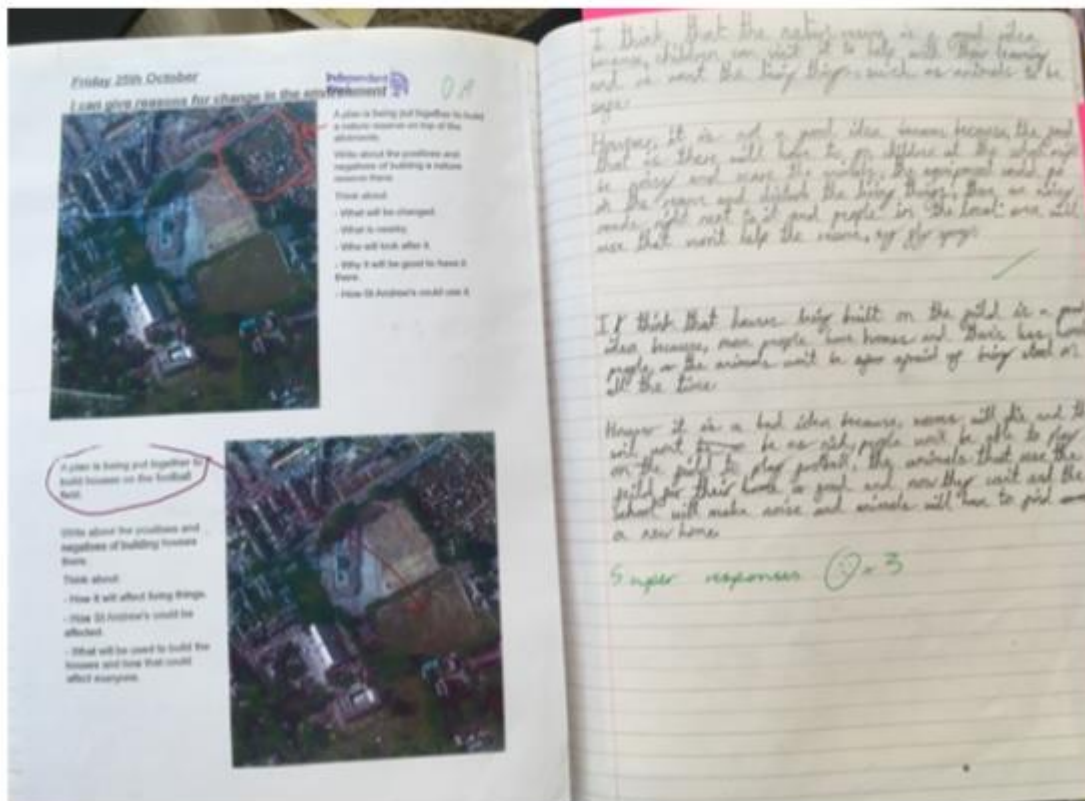 Friday 25th October
I can give reasons for change in the environment
Independent
A plan is being put together to build
a nature reserve on top of the
allotments.
Write about the positives and
negatives of building a nature
reserve there.
Think about:
- What will be changed.
- What is nearby.
- Who will look after it.
- Why it will be good to have it
there.
- How St Andrew's could use it.
A plan is being put together to
build houses on the football
field.
Write about the positives and
negatives of building houses
there.
Think about:
- How it will affect living things.
- How St Andrew's could be
affected.
- What will be used to build the
houses and how that could
affect everyone.
I think that the nature is a good idea
because, children can visit it to help with their learning
and want the living things, such as animals to be
However, it is not a good idea because the
that is there will have to go children at the
be noisy and scare the animals, the equipment could go
in the and disturb the living things, there
made right next to it and people in the local area will
use that won't help the
I think that houses being built on the feild is a
idea because, more people have homes and
people, so the animals won't be afraid of being
all the time.
However it is a bad idea because, will die and
will won't be no people won't be able to play
on the feild to play football, the animals that use the
feild for their home is good and now they can't and the
school will make noise and animals will have to find
a new home.
Super responses = 3